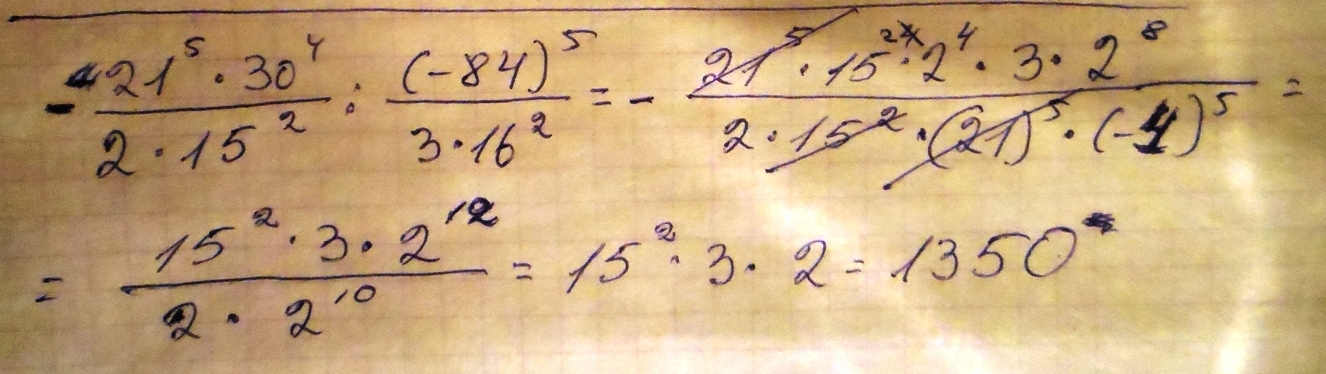 - 21⁵ · 30⁴ / 2 · 15² : (-84)⁵ / 3 · 16² = - 21⁵ · 15² · 2⁴ · 3 · 2⁸ / 2 · 15² · (21)⁵ · (-4)⁵ =
= 15² · 3 · 2¹² / 2 · 2¹⁰ = 15² · 3 · 2 = 1350